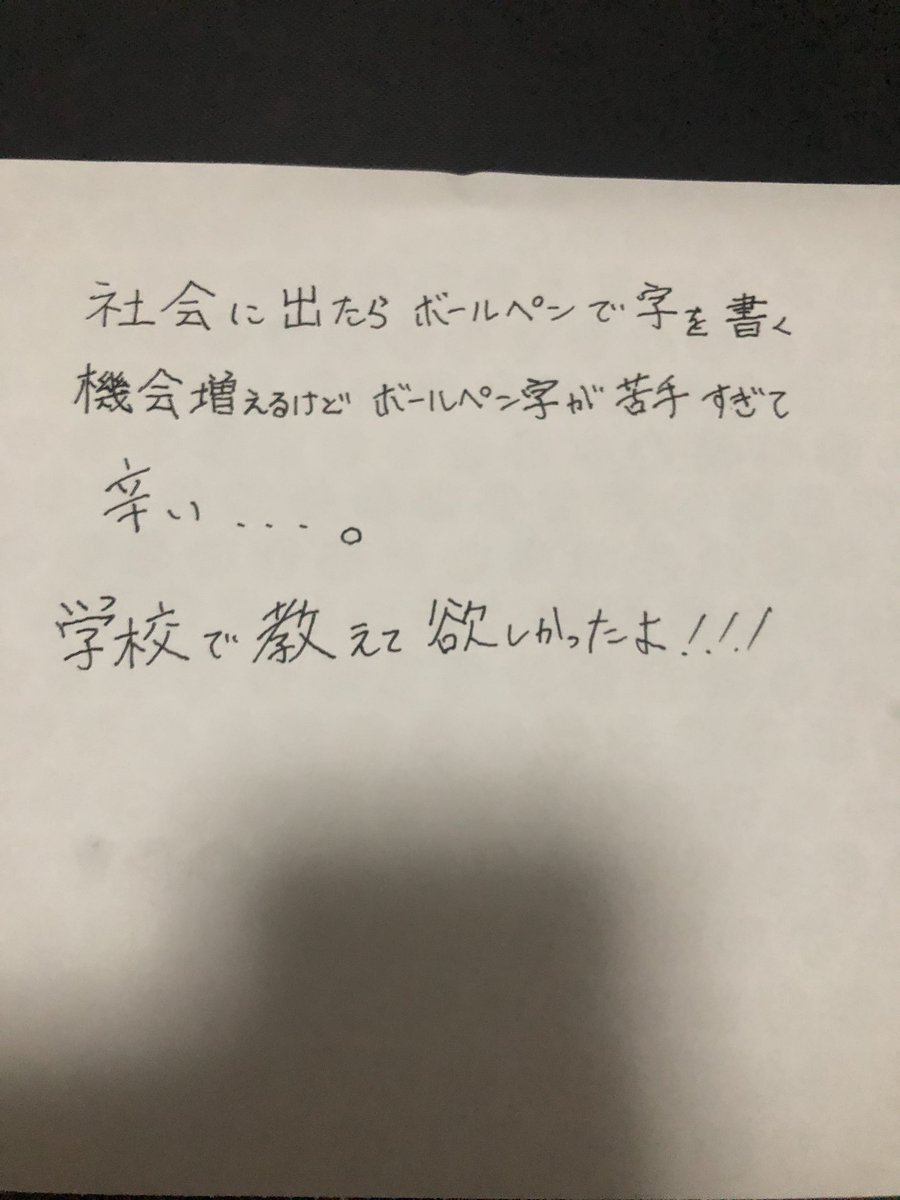 社会に出たらボールペンで字を書く
機会増えるけどボールペン字が苦手すぎて
辛い...。
学校で教えて欲しかったよ!!!